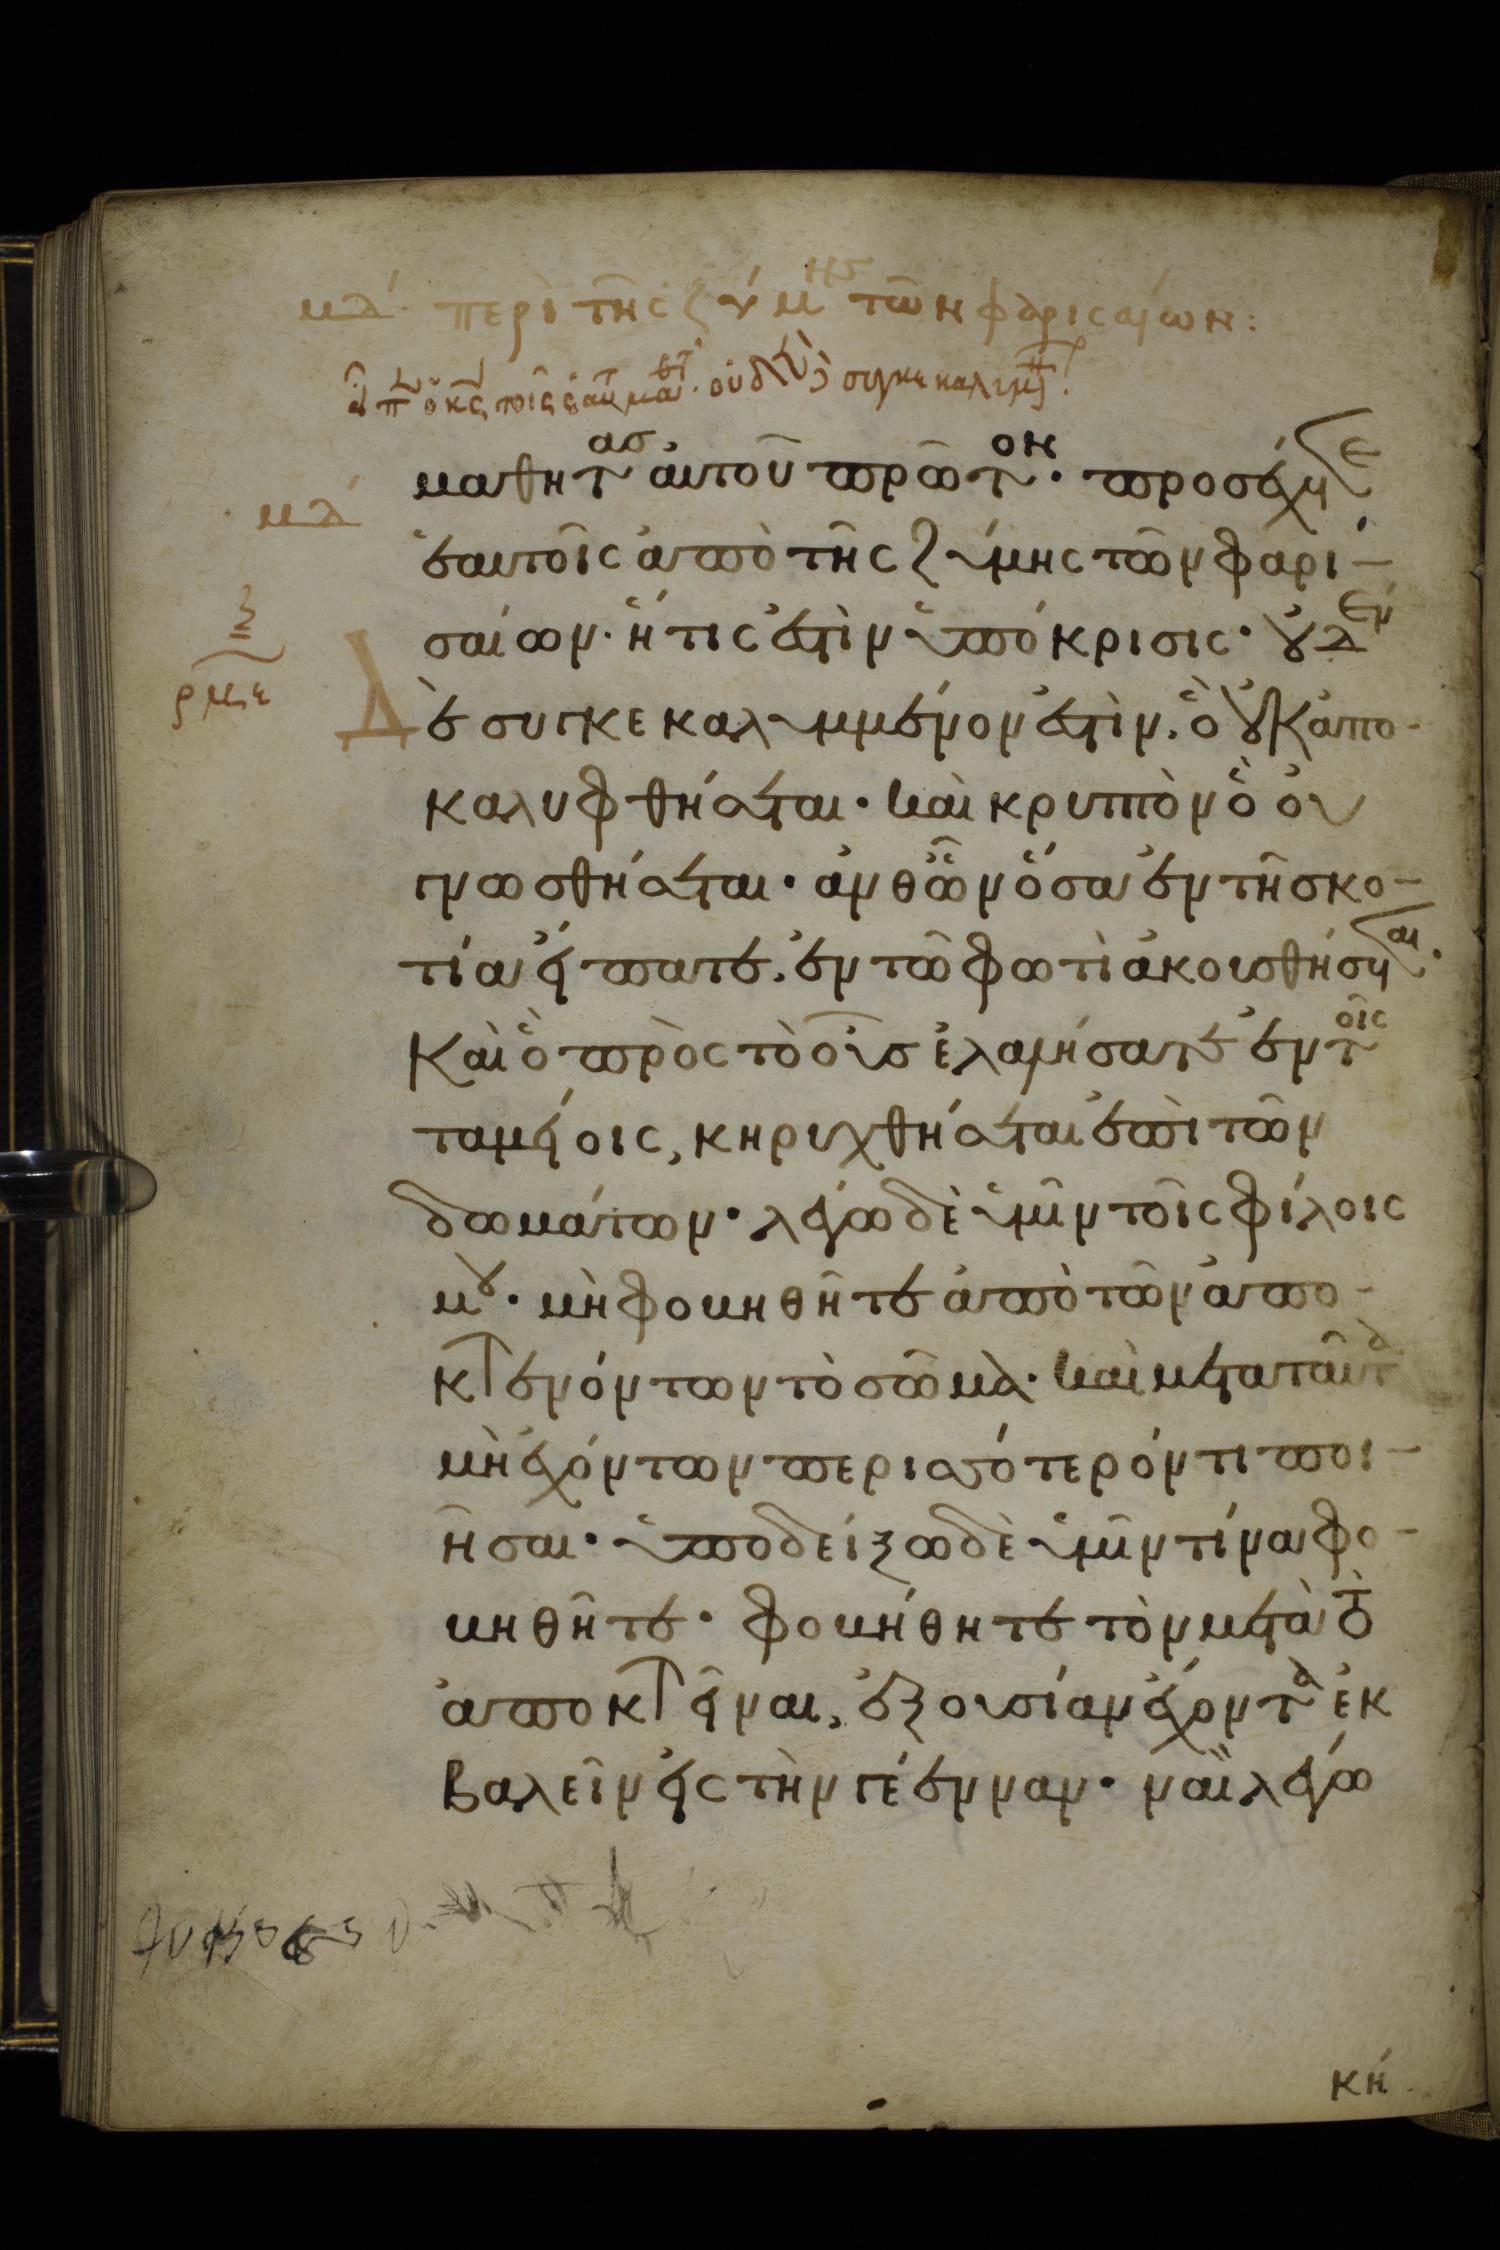 μδ΄ περὶ τῆς ζύμης τῶν φαρισαίων:
μαθητὰς αὐτοῦ πρῶτον· προσέχετε
μδ΄
ἑαυτοῖς ἀπὸ τῆς ζύμης τῶν φαρι-
σαίων· ἥτις ἐστὶν ὑπόκρισις· οὐδὲν
ρμε
Δὲ συγκεκαλυμμένον ἐστὶν, ὃ οὐκ ἀπο-
καλυφθήσεται· καὶ κρυπτὸν ὃ οὐ
γνωσθήσεται· ἀνθ ὧν ὅσα ἐν τῆ σκο-
τία εἴπατε, ἐν τῶ φωτὶ ἀκουσθήσεται·
Καὶ ὃ πρὸς τὸ οὖς ἐλαλήσατε ἐν τοῖς
ταμείοις, κηρυχθήσεται ἐπὶ τῶν
δωμάτων· λέγω δὲ ὑμῖν τοῖς φίλοις
μου· μὴ φοβηθῆτε ἀπὸ τῶν ἀπο-
κτενόντων τὸ σῶμα· καὶ μετα ταῦτα
μὴ ἐχόντων περισσότερόν τι ποι-
ῆσαι· ὑποδείξω δὲ ὑμῖν τίνα φο-
βηθῆτε· φοβήθητε τὸν μετὰ τὸ
ἀποκτεῖναι, ἐξουσίαν ἔχοντα ἐκ
βαλεῖν εἰς τὴν γέενναν· ναὶ λέγω
κή